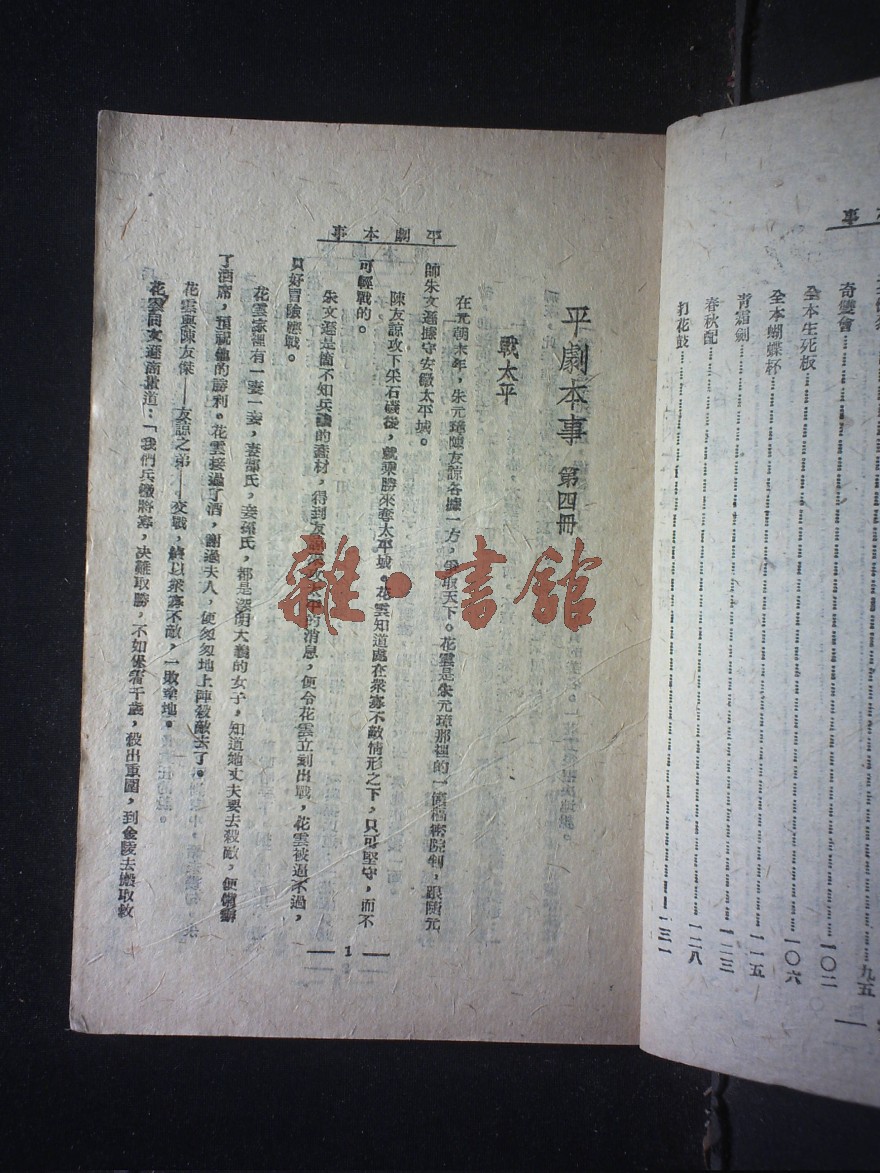 本事
奇雙會 九五
全本生死板 一〇二
全本蝴蝶杯 一〇六
青霜劍 一一五
春秋配 一二三
打花鼓 一二八
一三一
平劇本事
平劇本事 第四冊
戰太平
在元朝末年,朱元璋陳友諒各據一方,爭取天下。花雲是朱元璋那裡的一個樞密院判,跟隨元
師朱文遜據守安徽太平城。
陳友諒攻下采石磯後,就乘勝來奪太平城。花雲知道處在衆寡不敵情形之下,只可堅守,而不
可輕戰的。
朱文遜是箇不知兵機的蠢材,得到友諒來攻太平的消息,便令花雲立刻出戰,花雲被逼不過,
只好冒險應戰。
花雲家裡有一妻一妾,妻郜氏,妾孫氏,都是深明大義的女子,知道她丈夫要去殺敵,便備辦
了酒席,預祝他的勝利。花雲接過了酒,謝過夫人,便匆匆地上陣殺敵去了。
花雲與陳友傑——友諒之弟——交戰,終以衆寡不敵,一敗塗地。
花雲同文遜商量道:「我們兵微將寡,决難取勝,不如保着千歲,殺出重圍,到金陵去搬取救
1
雜·書館